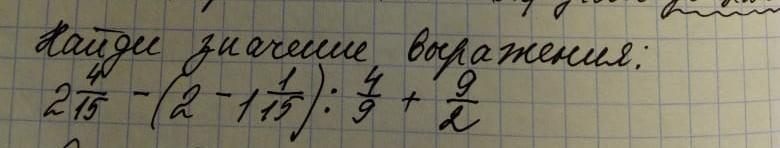 Найди значение выражения:
2 4/15 - (2 - 1 1/15) : 4/9 + 9/2